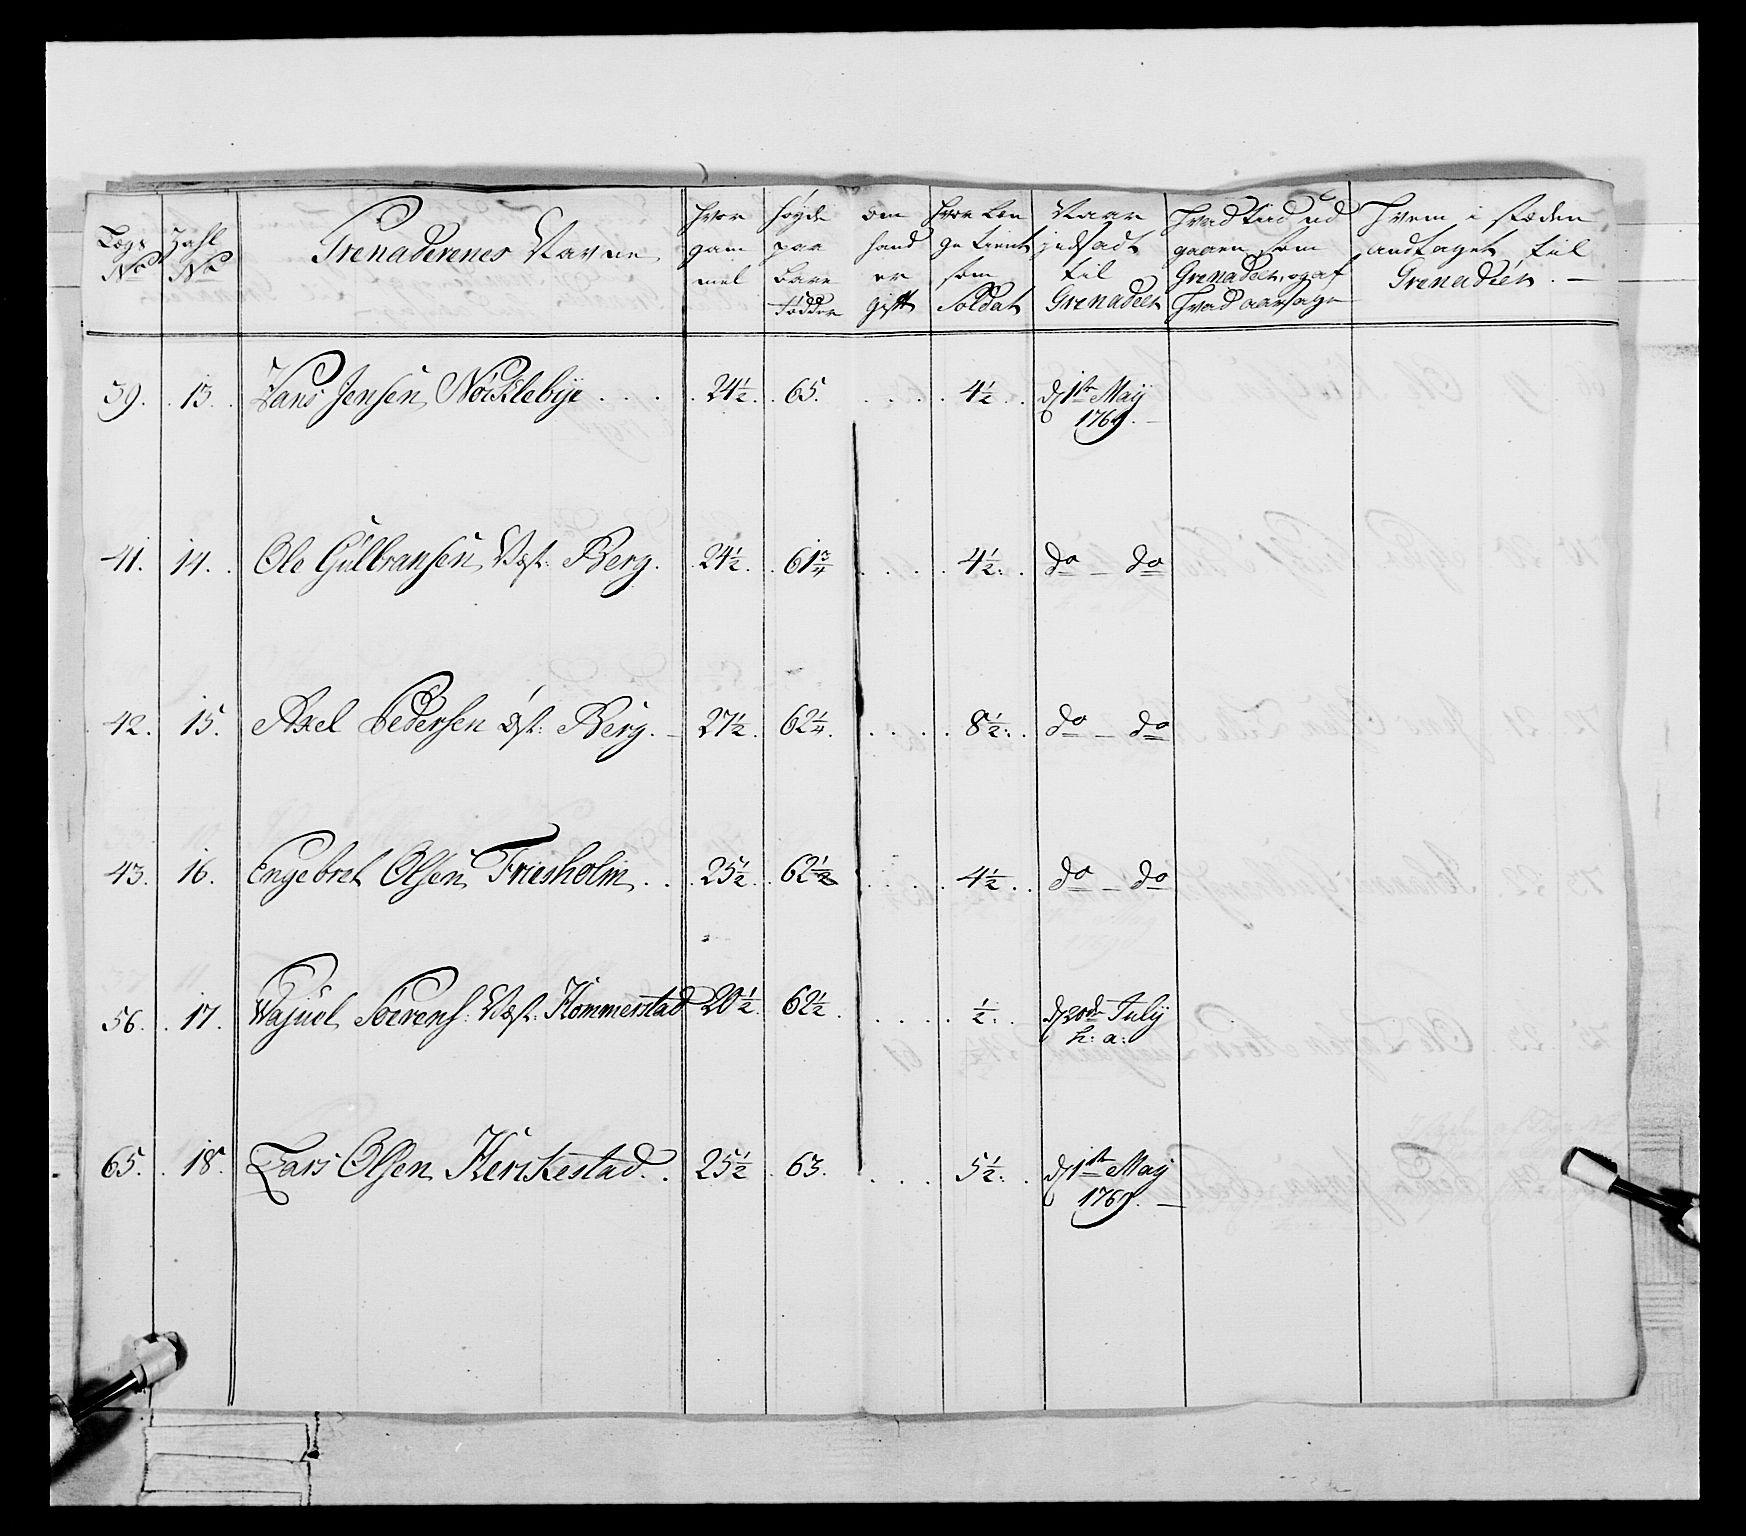 Lægs No | Zahl No | Grenaderenes Navne | hvor gam mel | høyde paa bare fødder | om hand er gift | hvor læn ge tient som Soldat | Naar indsadt til Grenadeer | Hvad tiid ud gaaen som Grenadeer, og af hvad aarsage | Hvem i stæden andtaget til Grenadeer. —
39. | 13. | Hans Jensen Nöcklebye | 24½. | 65. | | 4½ | d 1ste Maÿ 1769. —
41. | 14. | Ole Gulbransen Vest: Berg. | 24½. | 61¾ | | 4½: | do — do
42. | 15. | Axel Pedersen Øst: Berg. — | 27½. | 62¼. | | 8½: | do — do
43. | 16. | Engebret Olsen Friesholm | 25½. | 62½ | | 4½ | do — do
56. | 17. | Soerens: Vest: Hommerstad | 20½. | 62½ | | ½: | d 20de July h: a:
65. | 18. | Lars Olsen Kerkestad. | 25½ | 63. | | 5½: | d 1ste Maÿ 1769. —